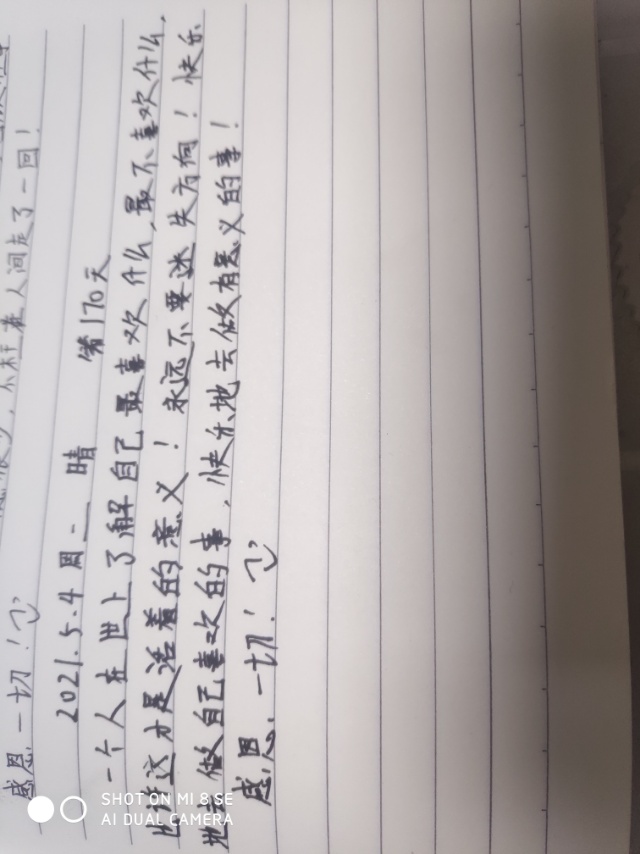 在人间走了一回!
感恩一切!
2021.5.4 周二 晴 第170天
一个人在世上了解自己最喜欢什么,最不喜欢什么,
这才是活着的意义!永远不要迷失方向!快乐
地去做自己喜欢的事,快乐地去做有意义的事!
感恩一切!
SHOT ON MI 8 SE
AI DUAL CAMERA